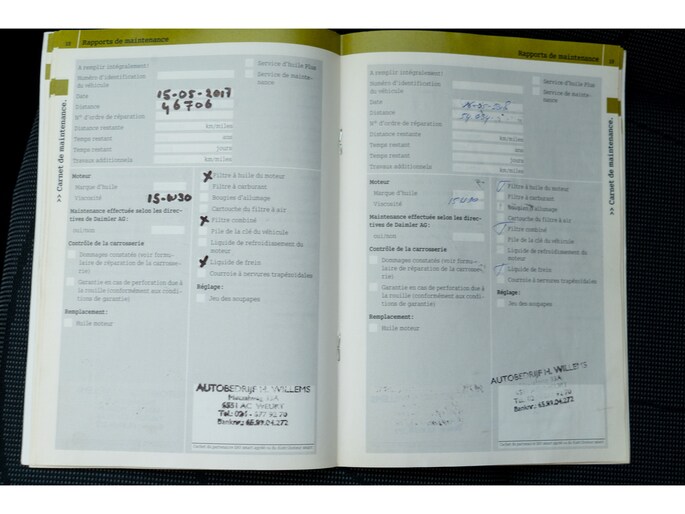 Rapports de maintenance
A remplir intégralement:
Numéro d'identification
du véhicule
Service d'huile Plus
Service de mainte-
nance
Date
15-05-2017
Distance
46706
N° d'ordre de réparation
Distance restante
km/miles
Temps restant
ans
Temps restant
jours
Travaux additionnels
km/miles
>> Carnet de maintenance.
Moteur
Marque d'huile
Viscosité
15-W30
Maintenance effectuée selon les direc-
tives de Daimler AG:
oui/non
Contrôle de la carrosserie
Dommages constatés (voir formu-
laire de réparation de la carrosse-
rie)
Garantie en cas de perforation due à
la rouille (conformément aux condi-
tions de garantie)
Remplacement:
Huile moteur
Filtre à huile du moteur
Filtre à carburant
Bougies d'allumage
Cartouche du filtre à air
Filtre combiné
Pile de la clé du véhicule
Liquide de refroidissement du
moteur
Liquide de frein
Courroie à nervures trapézoïdales
Réglage:
Jeu des soupapes
AUTOBEDRIJF H. WILLEMS
6551 AC WEURT
Tel.: 024 - 677 92 70
Banknr.: 65.89.04.272
Rapports de maintenance
A remplir intégralement:
Numéro d'identification
du véhicule
Service d'huile Plus
Service de mainte-
nance
Date
Distance
N° d'ordre de réparation
Distance restante
km/miles
Temps restant
ans
Temps restant
jours
Travaux additionnels
km/miles
>> Carnet de maintenance.
Moteur
Marque d'huile
Viscosité
Maintenance effectuée selon les direc-
tives de Daimler AG:
oui/non
Contrôle de la carrosserie
Dommages constatés (voir formu-
laire de réparation de la carrosse-
rie)
Garantie en cas de perforation due à
la rouille (conformément aux condi-
tions de garantie)
Remplacement:
Huile moteur
Filtre à huile du moteur
Filtre à carburant
Bougies d'allumage
Cartouche du filtre à air
Filtre combiné
Pile de la clé du véhicule
Liquide de refroidissement du
moteur
Liquide de frein
Courroie à nervures trapézoïdales
Réglage:
Jeu des soupapes
AUTOBEDRIJF H. WILLEMS
Banknr.: 65.89.04.272